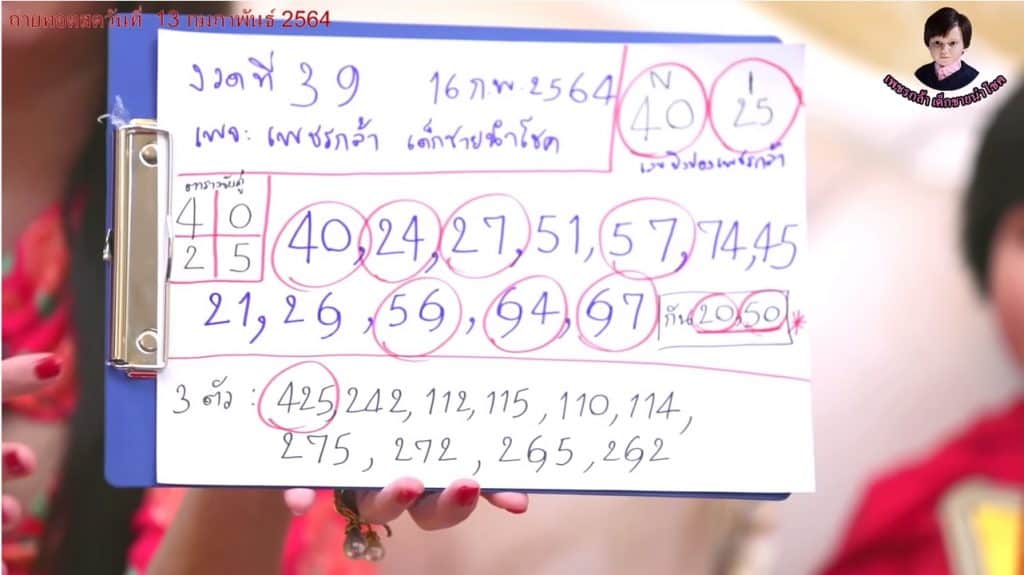 ถ่ายทอดสดวันที่ 13 กุมภาพันธ์ 2564
เพชรกล้า เด็กชายนำโชค
งวดที่ 39 16 ก.พ. 2564
N 1
40 25
เพจ: เพชรกล้า เด็กชายนำโชค
ตารางจับคู่
4 0
2 5
40, 24, 27, 51, 57, 74, 45
21, 26, 56, 64, 67 กัน 20, 50 *
3 ตัว : 425, 242, 112, 115, 110, 114,
275, 272, 265, 262